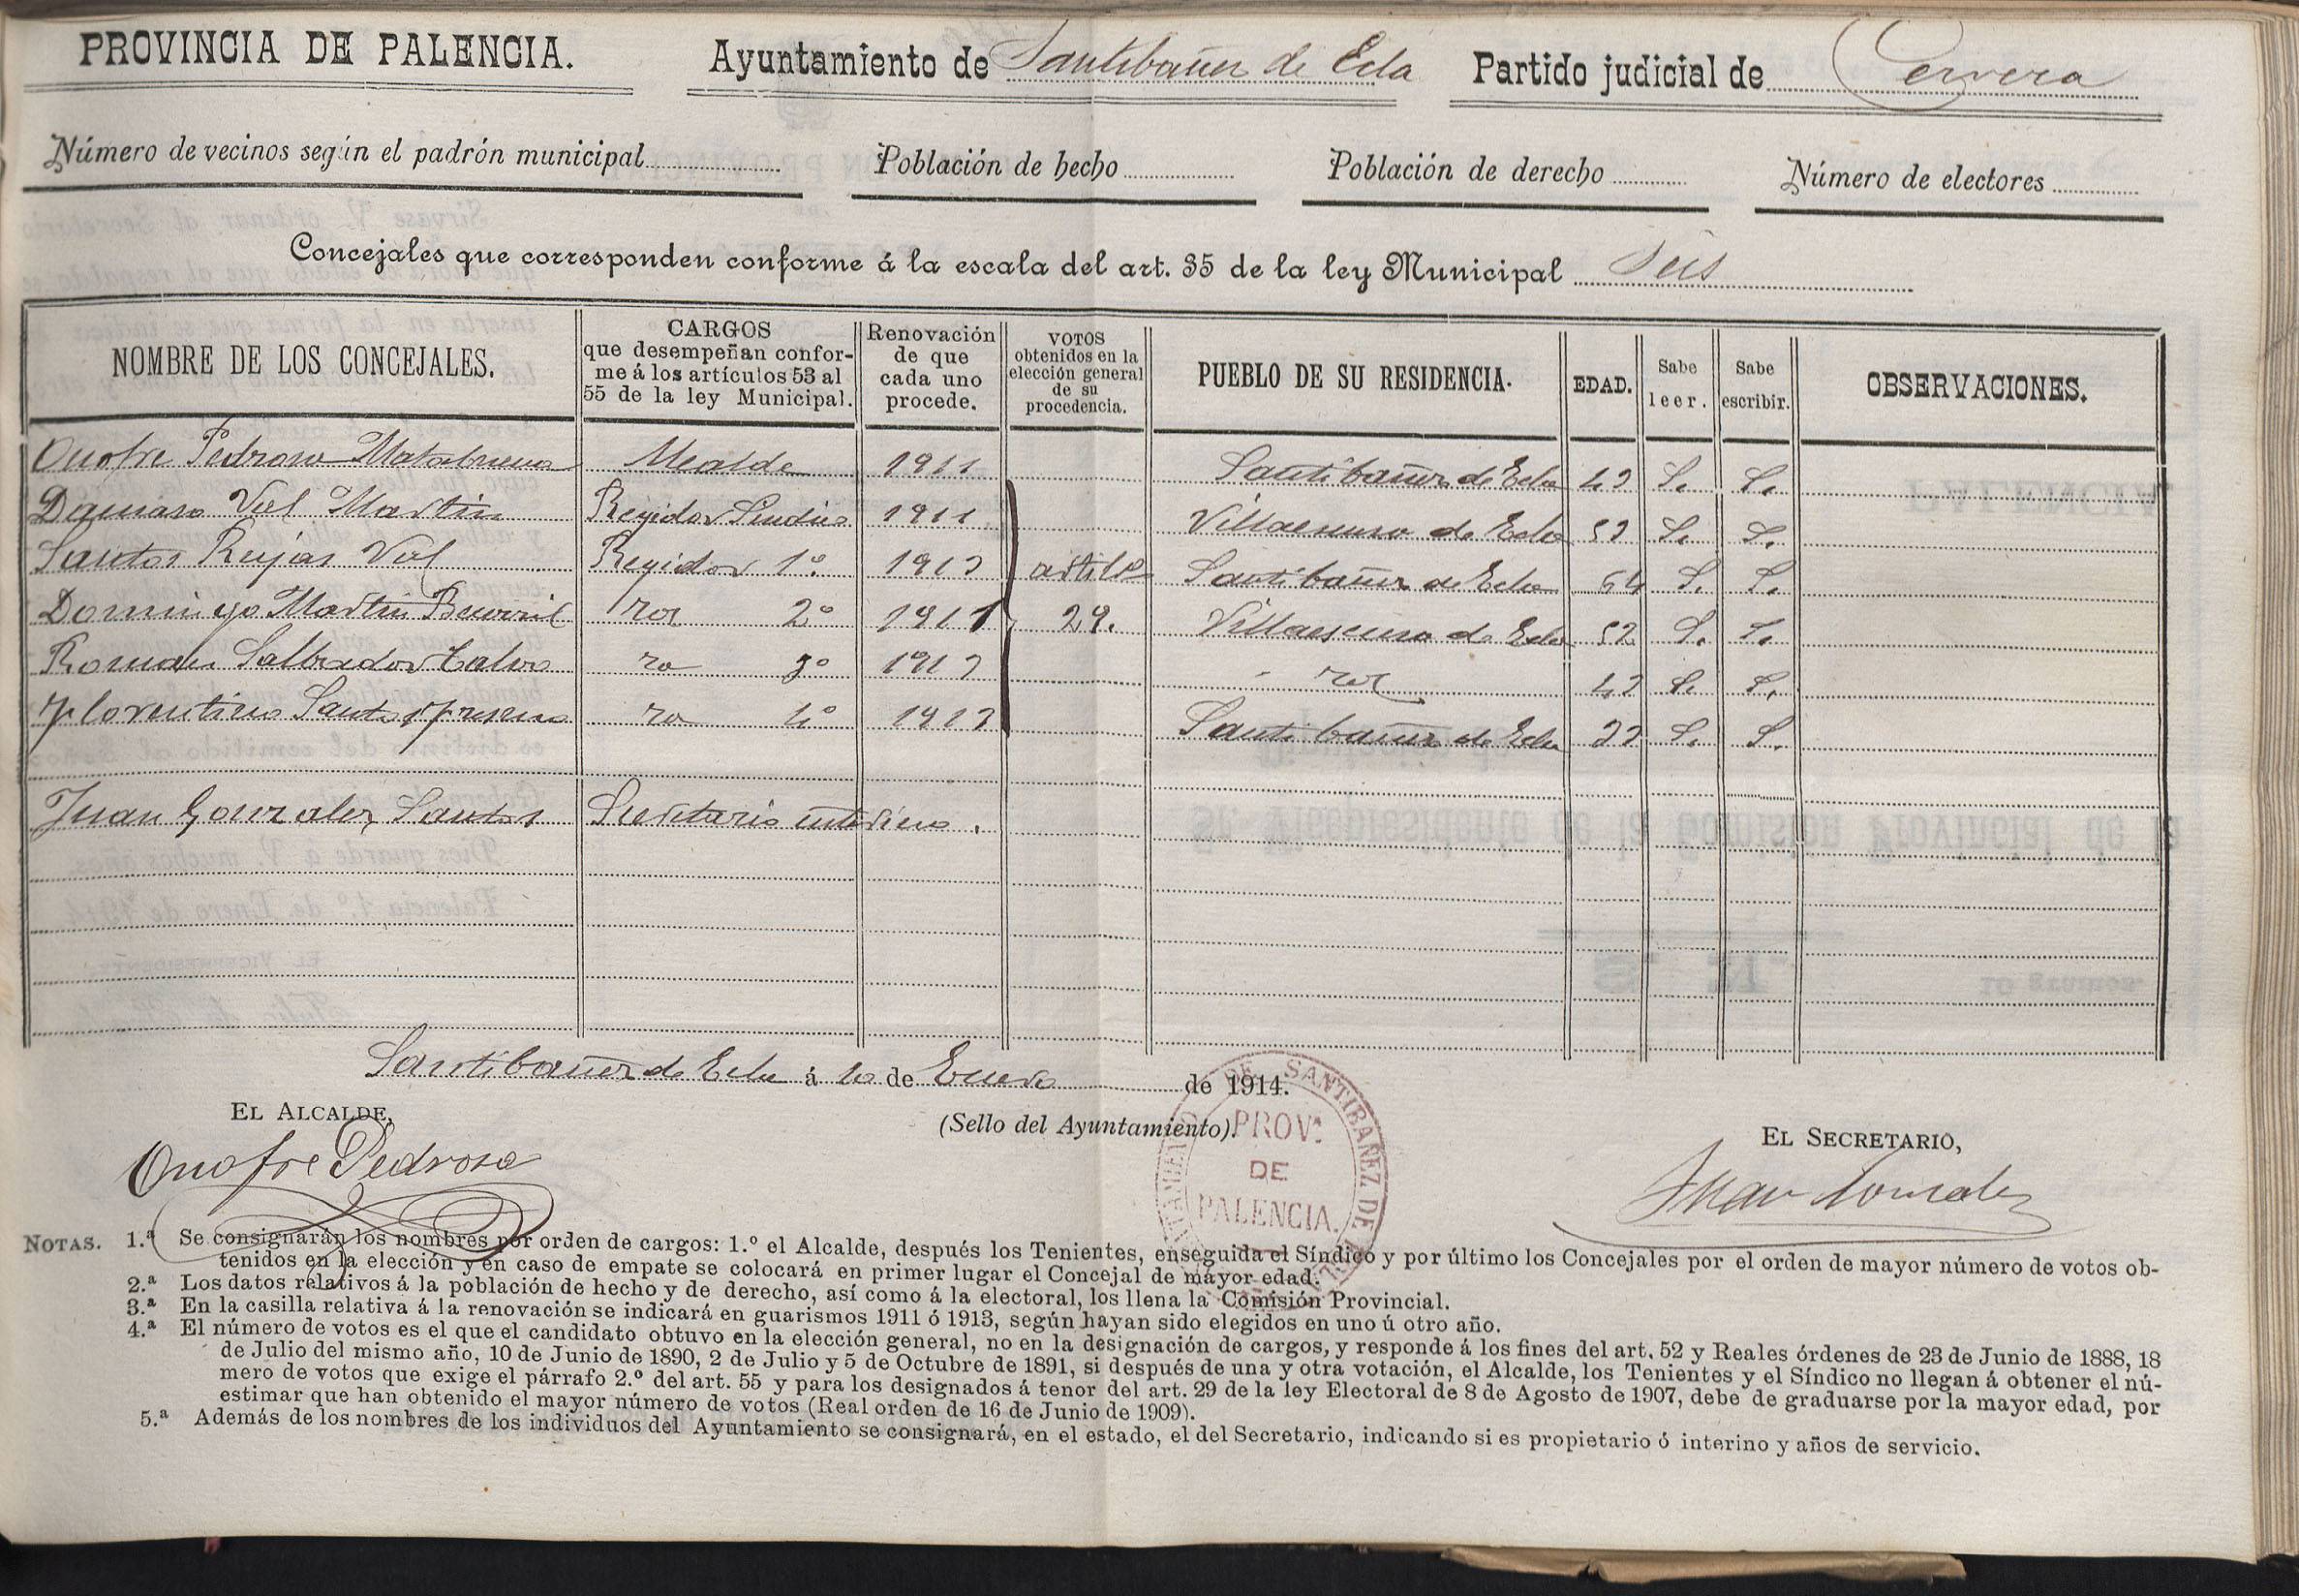 PROVINCIA DE PALENCIA. Ayuntamiento de Santibañez de Ecla Partido judicial de Cervera
Número de vecinos según el padrón municipal Población de hecho Población de derecho Número de electores
Concejales que corresponden conforme á la escala del art. 35 de la ley Municipal Seis
NOMBRE DE LOS CONCEJALES. CARGOS que desempeñan conforme á los artículos 53 al 55 de la ley Municipal. Renovación de que cada uno procede. VOTOS obtenidos en la elección general de su procedencia. PUEBLO DE SU RESIDENCIA. EDAD. Sabe leer. Sabe escribir. OBSERVACIONES.
Onofre Pedrosa Matabuena Alcalde 1911 Santibañez de Ecla 42 S. S.
Damaso Val Martin Regidor Sindico 1911 Villaescusa de Ecla 52 S. S.
Santos Rujas Val Regidor 1º. 1913 artilo Santibañez de Ecla 64 S. S.
Domingo Martin Becerril 2º 1911 29. Villaescusa de Ecla 52 S. S.
Roman Salbador Calvo 3º 1913 S. S.
Florentino Santos 4º 1913 Santibañez de Ecla S. S.
Juan Gonzalez Santos Secretario interino.
Santibañez de Ecla á 10 de Enero de 1914.
EL ALCALDE, (Sello del Ayuntamiento). EL SECRETARIO,
Onofre Pedrosa Juan Gonzalez
DE SANTIBAÑEZ DE
PROVª
DE
PALENCIA.
NOTAS. 1.ª Se consignarán los nombres por orden de cargos: 1.º el Alcalde, después los Tenientes, enseguida el Síndico y por último los Concejales por el orden de mayor número de votos ob-
tenidos en la elección y en caso de empate se colocará en primer lugar el Concejal de mayor edad.
2.ª Los datos relativos á la población de hecho y de derecho, así como á la electoral, los llena la Comisión Provincial.
3.ª En la casilla relativa á la renovación se indicará en guarismos 1911 ó 1913, según hayan sido elegidos en uno ú otro año.
4.ª El número de votos es el que el candidato obtuvo en la elección general, no en la designación de cargos, y responde á los fines del art. 52 y Reales órdenes de 23 de Junio de 1888, 18
de Julio del mismo año, 10 de Junio de 1890, 2 de Julio y 5 de Octubre de 1891, si después de una y otra votación, el Alcalde, los Tenientes y el Síndico no llegan á obtener el nú-
mero de votos que exige el párrafo 2.º del art. 55 y para los designados á tenor del art. 29 de la ley Electoral de 8 de Agosto de 1907, debe de graduarse por la mayor edad, por
estimar que han obtenido el mayor número de votos (Real orden de 16 de Junio de 1909).
5.ª Además de los nombres de los individuos del Ayuntamiento se consignará, en el estado, el del Secretario, indicando si es propietario ó interino y años de servicio.